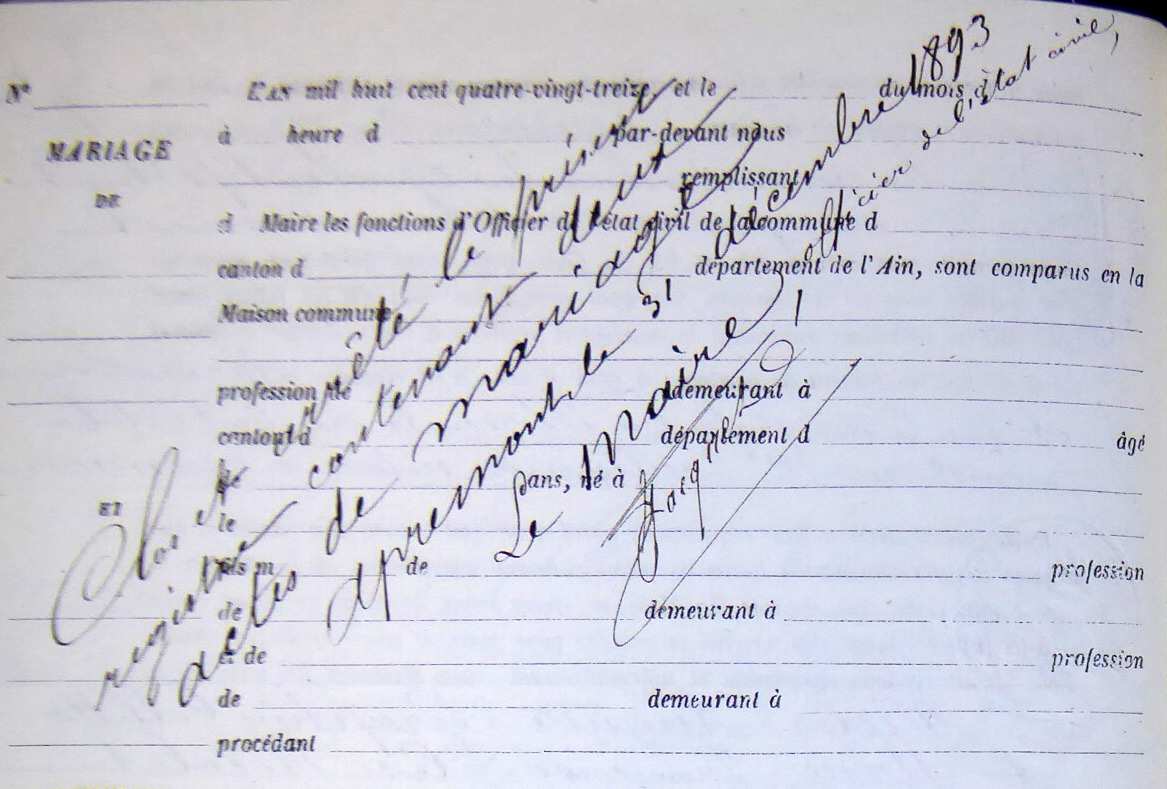 N° L'AN mil huit cent quatre-vingt-treize, et le du mois d
à heure d par-devant nous
MARIAGE
remplissant
DE
d Maire les fonctions d'Officier de l'état civil de la commune d
canton d département de l'Ain, sont comparus en la
Maison commune
profession de demeurant à
canton d département d âgé
d ans, né à
ET
le
fils m de profession
de demeurant à
et de profession
de demeurant à
procédant
Clos et arrêté le présent
registre contenant deux
actes de mariage
apremont, le 31 décembre 1893
Le Maire, officier de l'état civil,